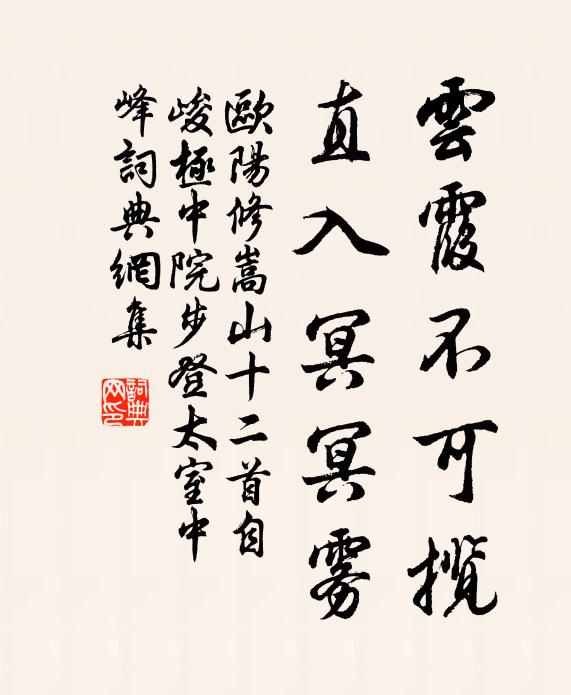 雲霞不可攬
直入冥冥雾
歐陽修嵩山十二首自
峻極中院步登太室中
峰詞典網集
詞典网印